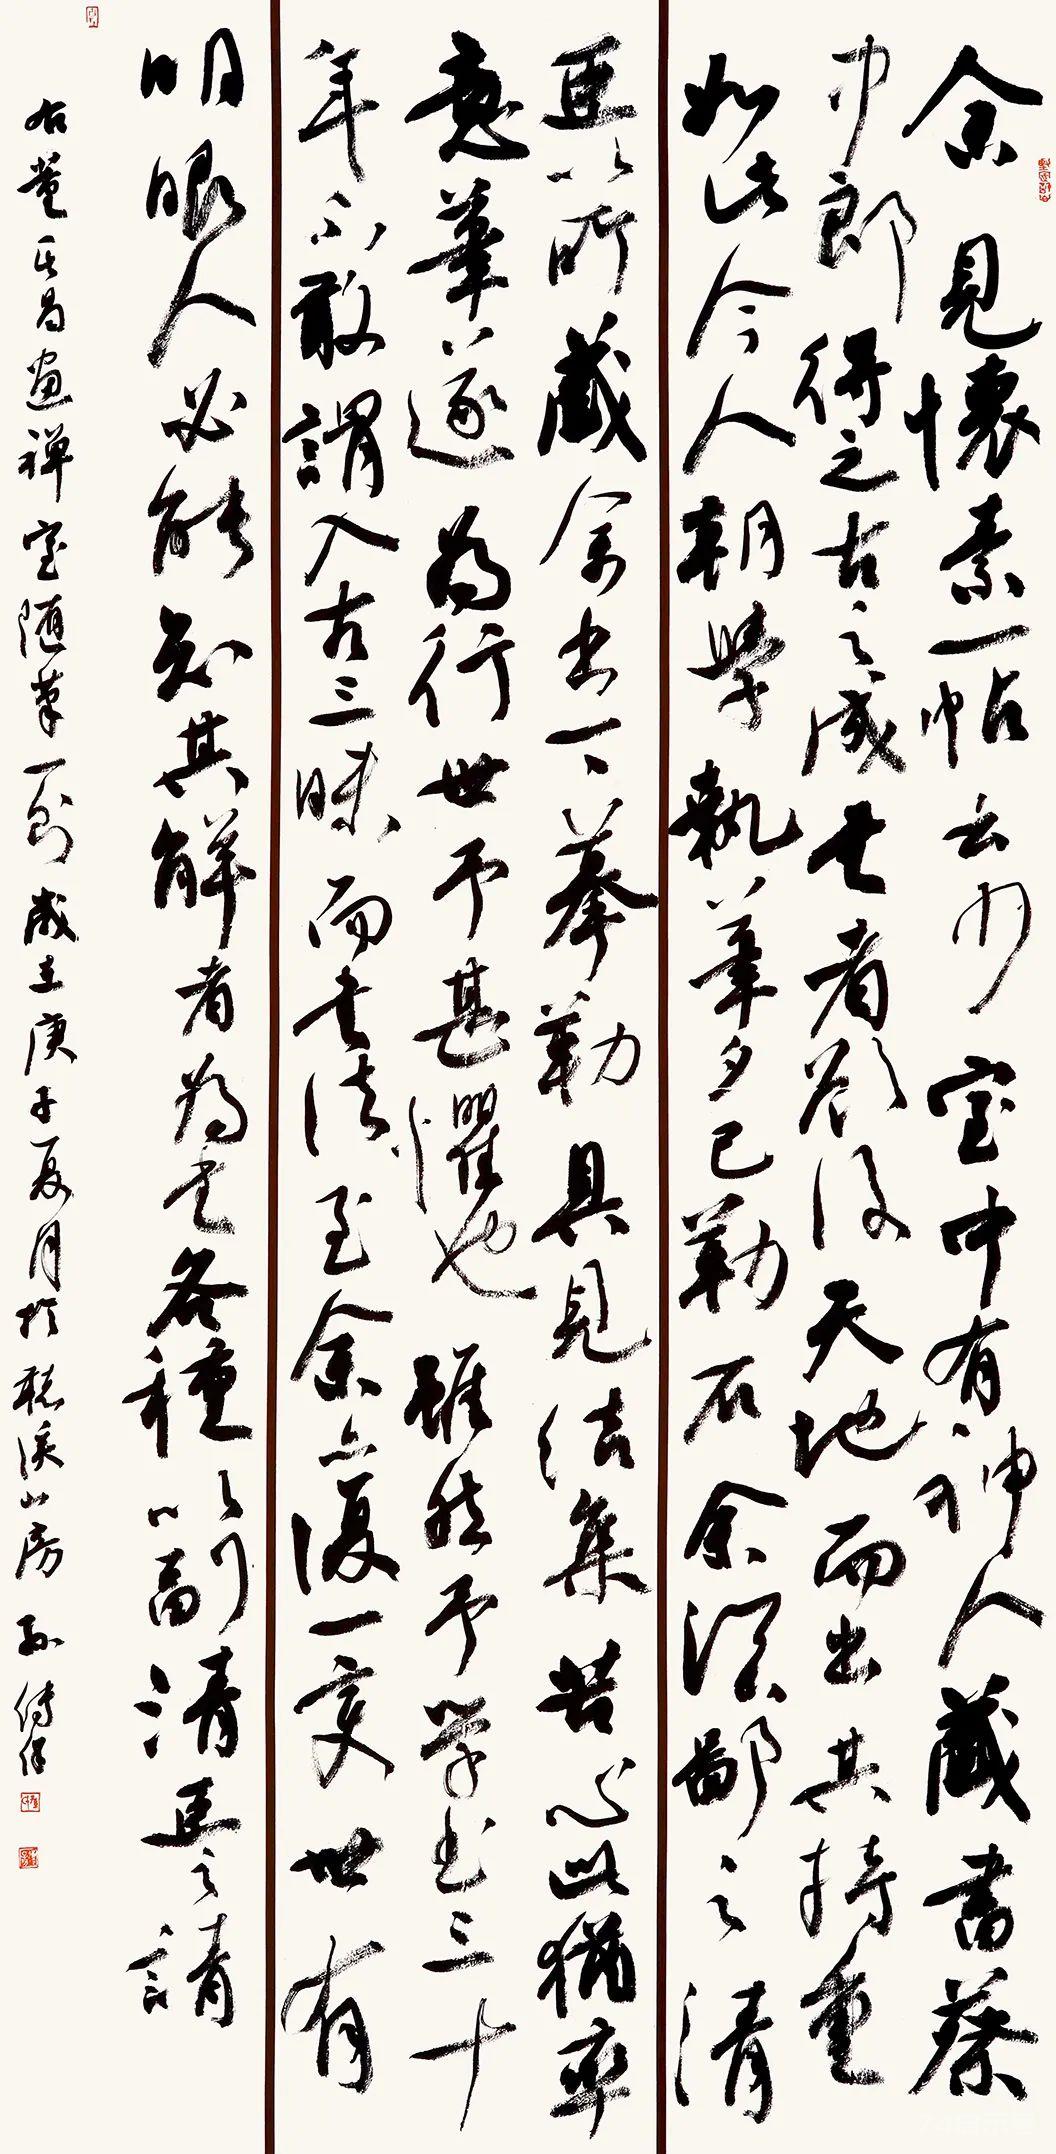 余見懷素一帖云少室中有神人藏書蔡
中郎得之古之成書者欲後天地而出其持重
如此今人朝學執筆夕已勒石余深鄙之清
臣以所藏余書一一摹勒具見結集苦心此猶率
意筆遂為行世予甚懼也雖然予學書三十
年不敢謂入古三昧而書法至余亦復一變世有
明眼人必能知其解者為書各種以副清臣之請
右董其昌畫禪室隨筆一則歲在庚子夏月於溪山房孫傳